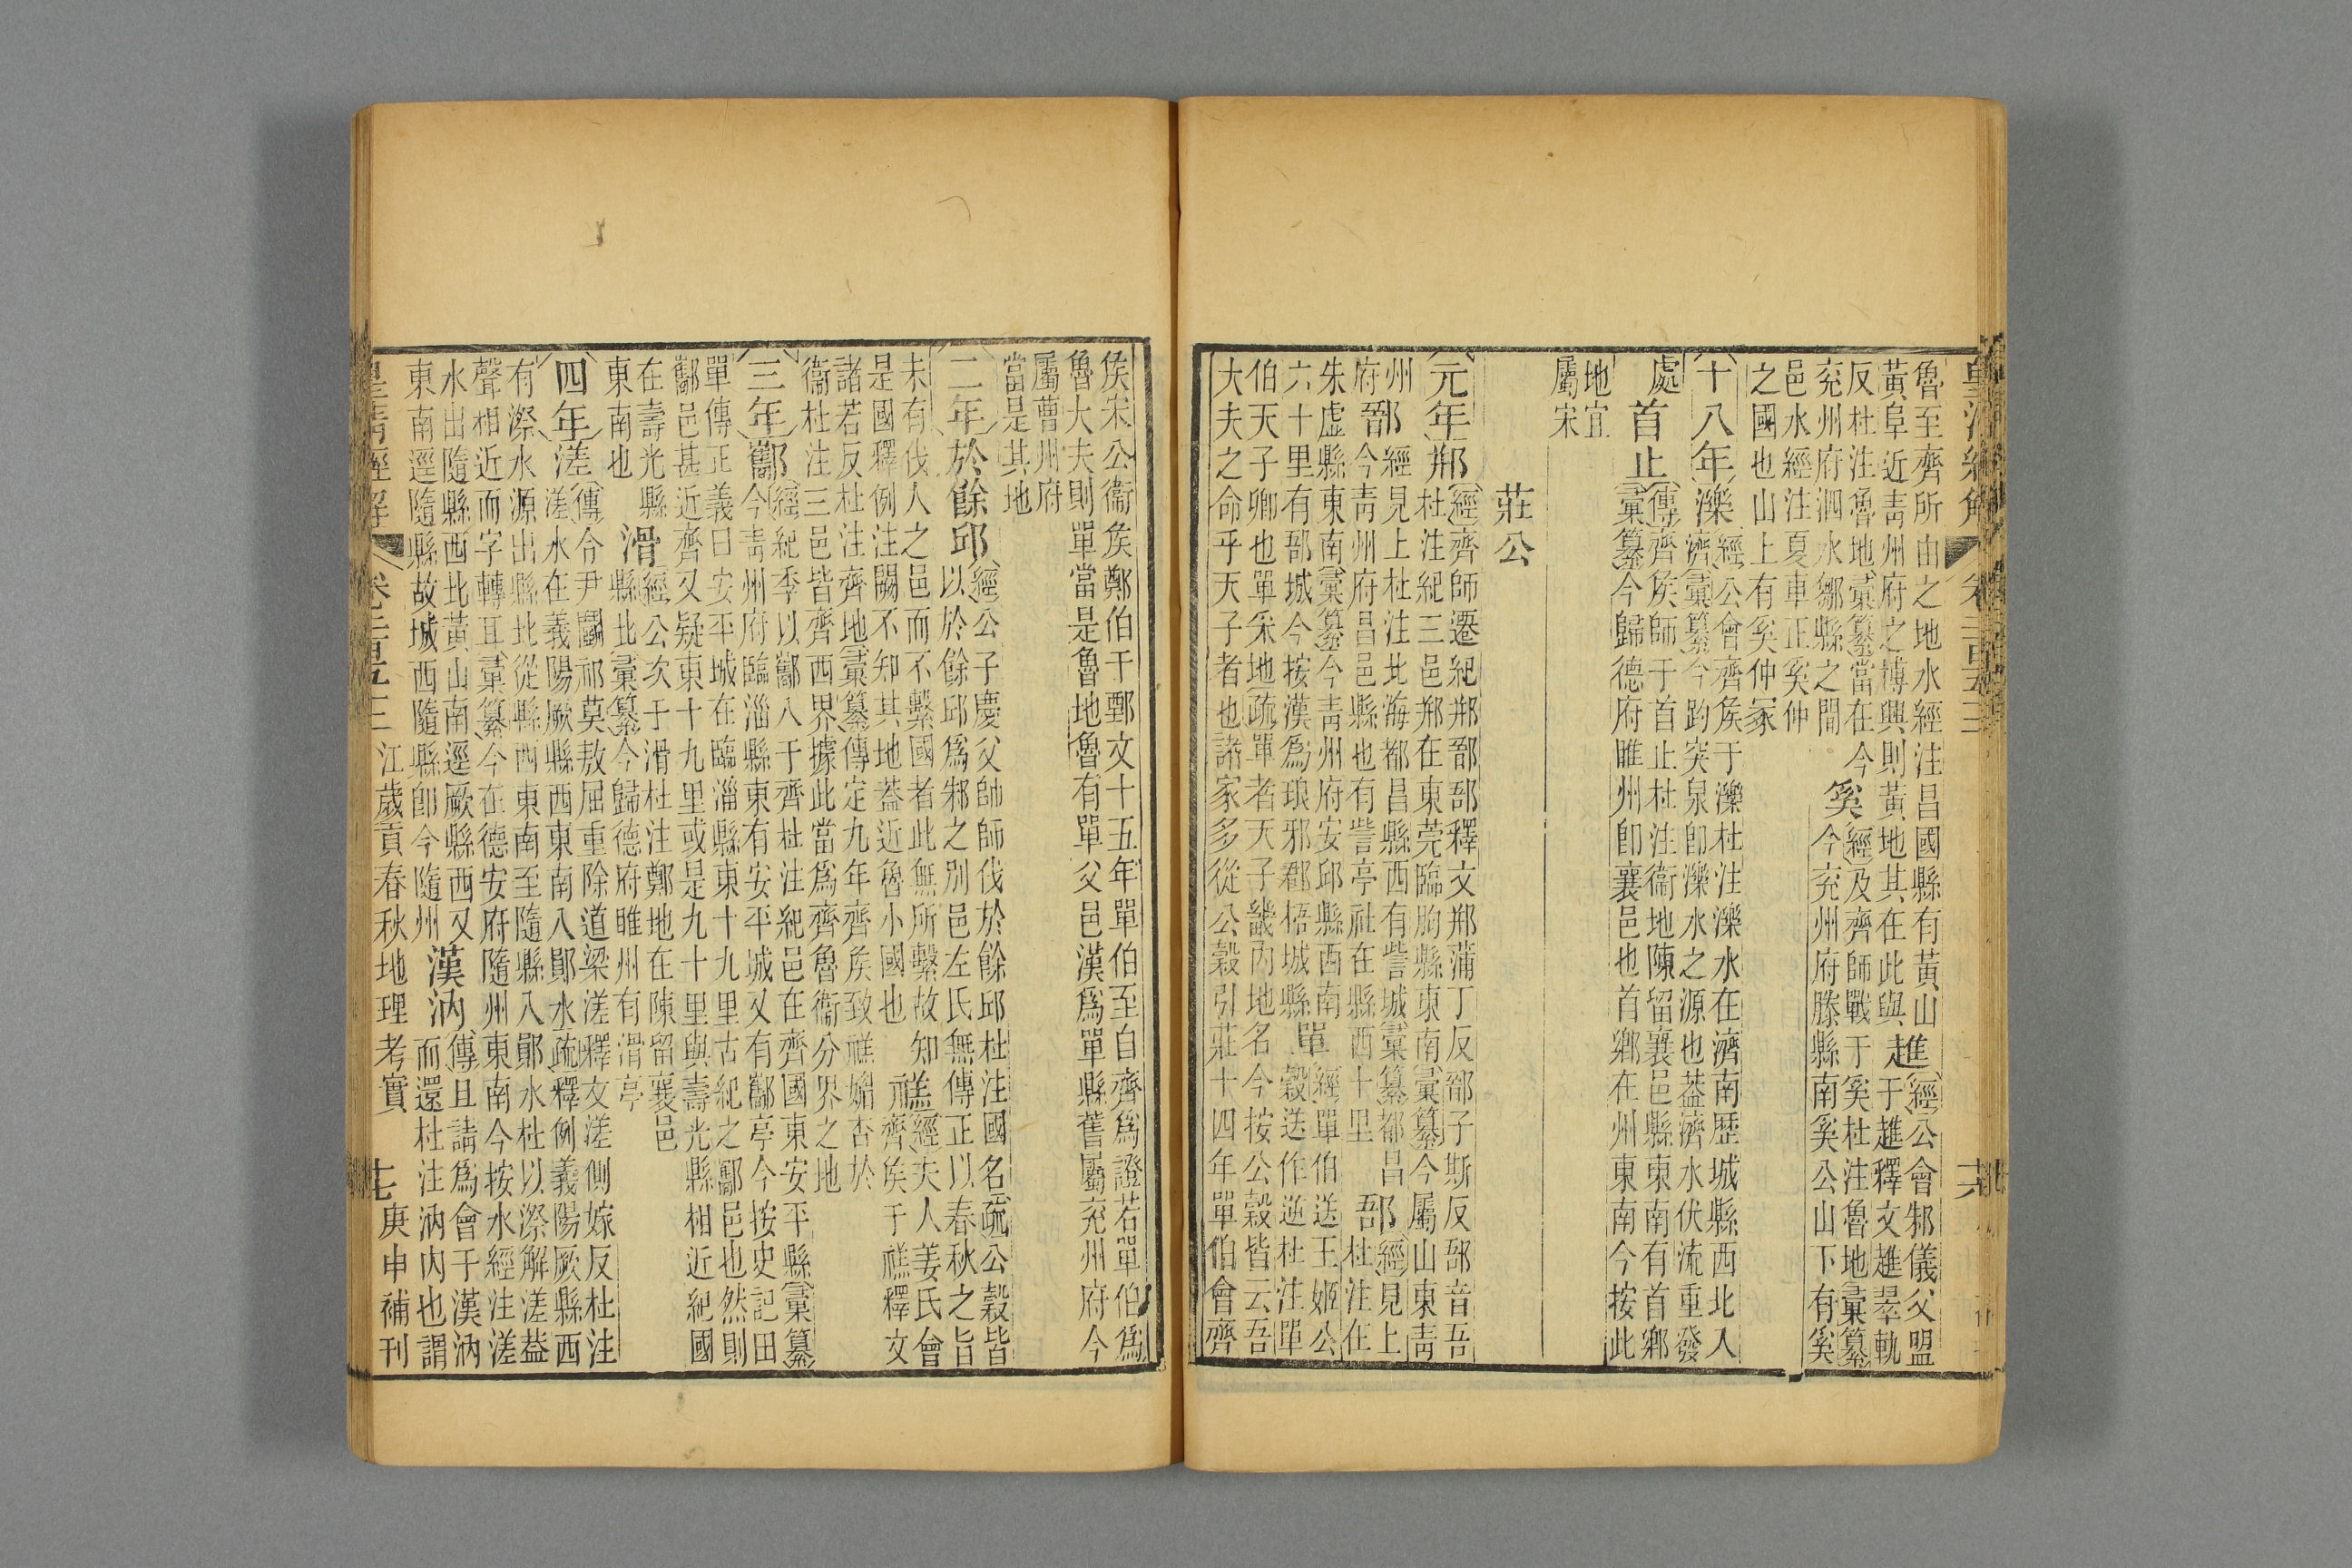 皇清經解
卷二百五十三
魯至齊所由之地水經注昌國縣有黃山
黃阜近青州府之博興則黃地其在此與
趡
經公會邾儀父盟
于趡釋文趡翠軌
反杜注魯地彙纂當在今
兗州府泗水鄒縣之閒
奚
經及齊師戰于奚杜注魯地彙纂
今兗州府滕縣南奚公山下有奚
邑水經注夏車正奚仲
之國也山上有奚仲冢
十八年濼
經公會齊矦于濼杜注濼水在濟南歷城縣西北入
濟彙纂今趵突泉卽濼水之源也葢濟水伏流重發
處
首止
傳齊矦師于首止杜注衞地陳留襄邑縣東南有首鄕
彙纂今歸德府睢州卽襄邑也首鄕在州東南今按此
地宜
屬宋
莊公
元年郱
經齊師遷紀郱鄑郚釋文郱蒲丁反鄑子斯反郚音吾
杜注紀三邑郱在東莞臨朐縣東南彙纂今屬山東青
州
鄑
經見上杜注北海都昌縣西有訾城彙纂都昌
府今青州府昌邑縣也有訾亭社在縣西十里
郚
經見上
杜注在
朱虛縣東南彙纂今青州府安邱縣西南
六十里有郚城今按漢爲琅邪郡梧城縣
單
經單伯送王姬公
穀送作逆杜注單
伯天子卿也單采地疏單者天子畿內地名今按公穀皆云吾
大夫之命乎天子者也諸家多從公穀引莊十四年單伯會齊
矦宋公衞矦鄭伯于鄄文十五年單伯至自齊爲證若單伯爲
魯大夫則單當是魯地魯有單父邑漢爲單縣舊屬兗州府今
屬曹州府
當是其地
二年於餘邱
經公子慶父帥師伐於餘邱杜注國名疏公穀皆
以於餘邱爲邾之別邑左氏無傳正以春秋之旨
未有伐人之邑而不繫國者此無所繫故知
是國釋例注闕不知其地葢近魯小國也
禚
經夫人姜氏會
齊矦于禚釋文
諸若反杜注齊地彙纂傳定九年齊矦致禚媚杏於
衞杜注三邑皆齊西界據此當爲齊魯衞分界之地
三年酅
經紀季以酅入于齊杜注紀邑在齊國東安平縣彙纂
今青州府臨淄縣東有安平城又有酅亭今按史記田
單傳正義曰安平城在臨淄縣東十九里古紀之酅邑也然則
酅邑甚近齊又疑東十九里或是九十里與壽光縣相近紀國
在壽光縣
東南也
滑
經公次于滑杜注鄭地在陳留襄邑
縣北彙纂今歸德府睢州有滑亭
四年溠
傳令尹鬬祁莫敖屈重除道梁溠釋文溠側嫁反杜注
溠水在義陽厥縣西東南入鄖水疏釋例義陽厥縣西
有溠水源出縣北從縣西東南至隨縣入鄖水杜以溠解溠葢
聲相近而字轉耳彙纂今在德安府隨州東南今按水經注溠
水出隨縣西北黃山南逕厥縣西又
東南逕隨縣故城西隨縣卽今隨州
漢汭
傳且請爲會于漢汭
而還杜注汭內也謂
皇清經解
卷二百五十三
江歲貢春秋地理考實
庚申補刊